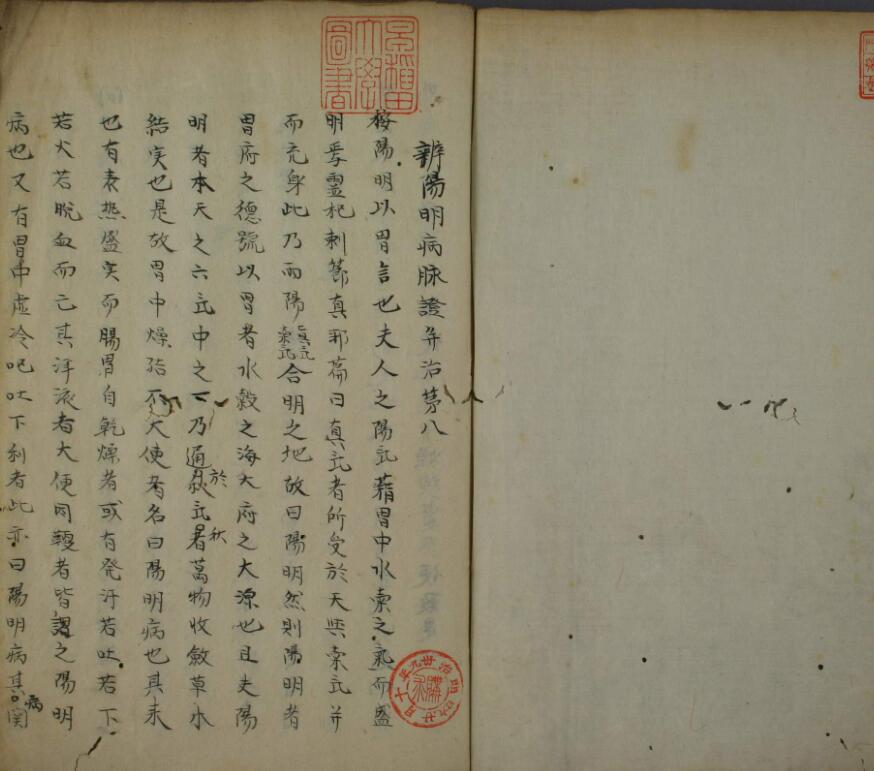 辨陽明病脉證并治苐八
按陽明以胃言也夫人之陽氣藉胃中水穀之氣而盛
明乎靈樞刺節真邪篇曰真气者所受於天與穀气并
而充身此乃兩陽真气穀气合明之地故曰陽明然則陽明者
胃府之德號以胃者水穀之海大府之大源也且夫陽
明者本天之六气中之一乃通於秋气秋者萬物收斂草木
結实也是故胃中燥結不大便者名曰陽明病也其未
也有表热盛实而腸胃自乾燥者或有発汗若吐若下
若火若脫血而亡其津液者大便因鞕者皆謂之陽明
病也又有胃中虛冷吧吐下利者此亦曰陽明病其病
早稲田大學圖書
明治卅九年十月廿九日購求